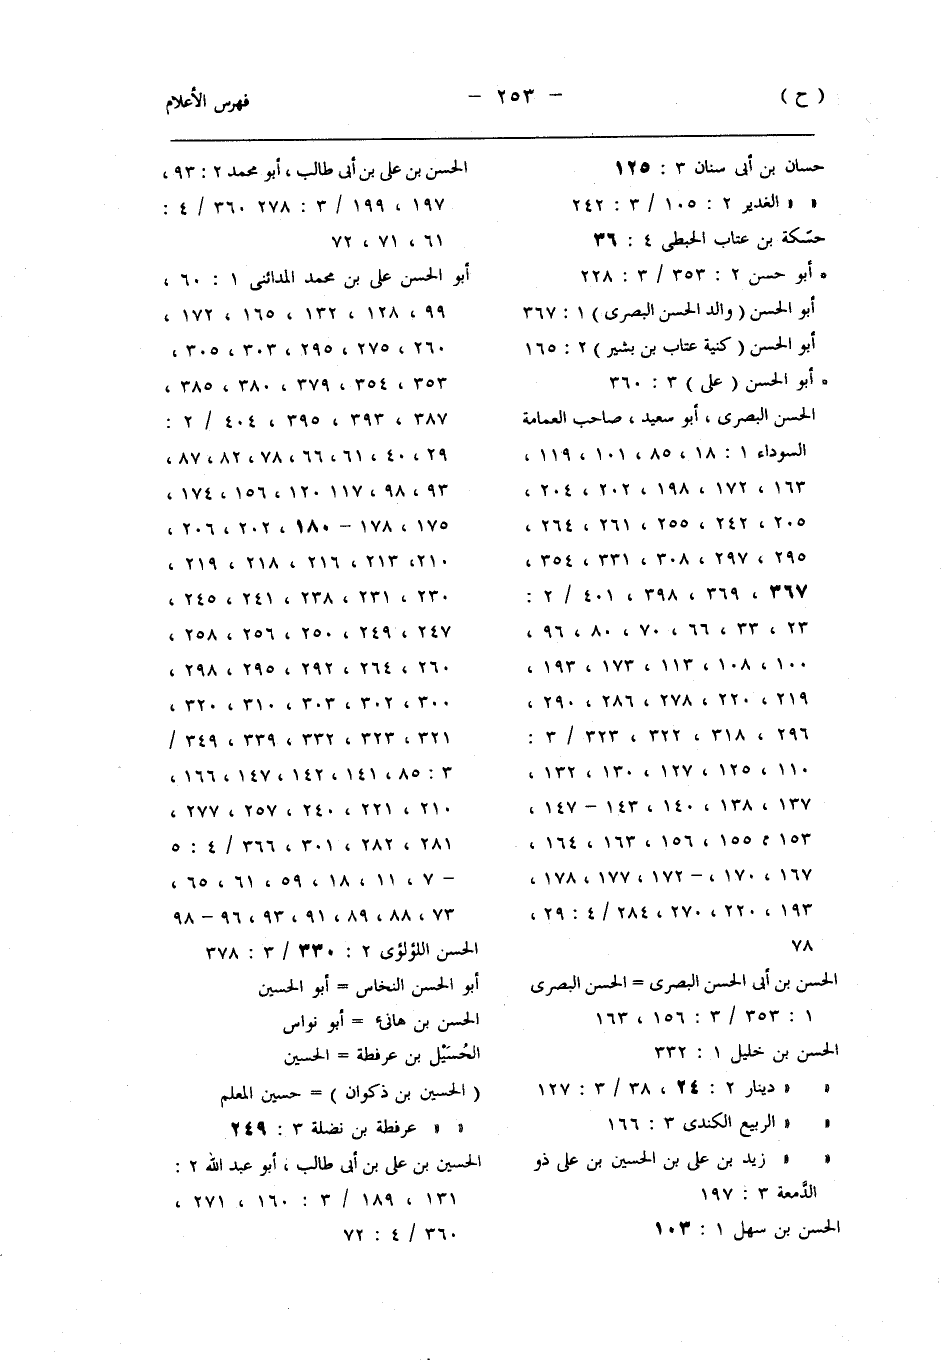 ( ح ) — ٢٥٣ — فهرس الأعلام
حسان بن أبى سنان ٣ : ١٢٥
» » الغدير ٢ : ١٠٥ / ٣ : ٢٤٢
حسّكة بن عتاب الحبطى ٤ : ٣٦
* أبو حسن ٢ : ٣٥٣ / ٣ : ٢٢٨
أبو الحسن ( والد الحسن البصرى ) ١ : ٣٦٧
أبو الحسن ( كنية عتاب بن بشير ) ٢ : ١٦٥
* أبو الحسن ( على ) ٣ : ٣٦٠
الحسن البصرى ، أبو سعيد ، صاحب العمامة
السوداء ١ : ١٨ ، ٨٥ ، ١٠١ ، ١١٩ ،
١٦٣ ، ١٧٢ ، ١٩٨ ، ٢٠٢ ، ٢٠٤ ،
٢٠٥ ، ٢٤٢ ، ٢٥٥ ، ٢٦١ ، ٢٦٤ ،
٢٩٥ ، ٢٩٧ ، ٣٠٨ ، ٣٣١ ، ٣٥٤ ،
٣٦٧ ، ٣٦٩ ، ٣٩٨ ، ٤٠١ / ٢ :
٢٣ ، ٣٣ ، ٦٦ ، ٧٠ ، ٨٠ ، ٩٦ ،
١٠٠ ، ١٠٨ ، ١١٣ ، ١٧٣ ، ١٩٣ ،
٢١٩ ، ٢٢٠ ، ٢٧٨ ، ٢٨٦ ، ٢٩٠ ،
٢٩٦ ، ٣١٨ ، ٣٢٢ ، ٣٢٣ / ٣ :
١١٠ ، ١٢٥ ، ١٢٧ ، ١٣٠ ، ١٣٢ ،
١٣٧ ، ١٣٨ ، ١٤٠ ، ١٤٣ – ١٤٧ ،
١٥٣ ، ١٥٥ ، ١٥٦ ، ١٦٣ ، ١٦٤ ،
١٦٧ ، ١٧٠ ، – ١٧٢ ، ١٧٧ ، ١٧٨ ،
١٩٣ ، ٢٢٠ ، ٢٧٠ ، ٢٨٤ / ٤ : ٢٩ ،
٧٨
الحسن بن أبى الحسن البصرى = الحسن البصرى
١ : ٣٥٣ / ٣ : ١٥٦ ، ١٦٣
الحسن بن خليل ١ : ٣٣٢
» » دينار ٢ : ٢٤ ، ٣٨ / ٣ : ١٢٧
» » الربيع الكندى ٣ : ١٦٦
» » زيد بن على بن الحسين بن على ذو
الدَّمعة ٣ : ١٩٧
الحسن بن سهل ١ : ١٠٣
الحسن بن على بن أبى طالب ، أبو محمد ٢ : ٩٣ ،
١٩٧ ، ١٩٩ / ٣ : ٢٧٨ ٣٦٠ / ٤ :
٦١ ، ٧١ ، ٧٢
أبو الحسن على بن محمد المدائنى ١ : ٦٠ ،
٩٩ ، ١٢٨ ، ١٣٢ ، ١٦٥ ، ١٧٢ ،
٢٦٠ ، ٢٧٥ ، ٢٩٥ ، ٣٠٣ ، ٣٠٥ ،
٣٥٣ ، ٣٥٤ ، ٣٧٩ ، ٣٨٠ ، ٣٨٥ ،
٣٨٧ ، ٣٩٣ ، ٣٩٥ ، ٤٠٤ / ٢ :
٢٩ ، ٤٠ ، ٦١ ، ٦٦ ، ٧٨ ، ٨٢ ، ٨٧ ،
٩٣ ، ٩٨ ، ١١٧ ١٢٠ ، ١٥٦ ، ١٧٤ ،
١٧٥ ، ١٧٨ – ١٨٠ ، ٢٠٢ ، ٢٠٦ ،
٢١٠، ٢١٣ ، ٢١٦ ، ٢١٨ ، ٢١٩ ،
٢٣٠ ، ٢٣١ ، ٢٣٨ ، ٢٤١ ، ٢٤٥ ،
٢٤٧ ، ٢٤٩ ، ٢٥٠ ، ٢٥٦ ، ٢٥٨ ،
٢٦٠ ، ٢٦٤ ، ٢٩٢ ، ٢٩٥ ، ٢٩٨ ،
٣٠٠ ، ٣٠٢ ، ٣٠٣ ، ٣١٠ ، ٣٢٠ ،
٣٢١ ، ٣٢٣ ، ٣٣٢ ، ٣٣٩ ، ٣٤٩ /
٣ : ٨٥ ، ١٤١ ، ١٤٢ ، ١٤٧ ، ١٦٦ ،
٢١٠ ، ٢٢١ ، ٢٤٠ ، ٢٥٧ ، ٢٧٧ ،
٢٨١ ، ٢٨٢ ، ٣٠١ ، ٣٦٦ / ٤ : ٥
– ٧ ، ١١ ، ١٨ ، ٥٩ ، ٦١ ، ٦٥ ،
٧٣ ، ٨٨ ، ٨٩ ، ٩١ ، ٩٣ ، ٩٦ – ٩٨
الحسن اللؤلؤى ٢ : ٣٣٠ / ٣ : ٣٧٨
أبو الحسن النخاس = أبو الحسين
الحسن بن هانئ = أبو نواس
الحُسَيْل بن عرفطة = الحسين
( الحسين بن ذكوان ) = حسين المعلم
» » عرفطة بن نضلة ٣ : ٢٤٩
الحسين بن على بن أبى طالب ، أبو عبد الله ٢ :
١٣١ ، ١٨٩ / ٣ : ١٦٠ ، ٢٧١ ،
٣٦٠ / ٤ : ٧٢